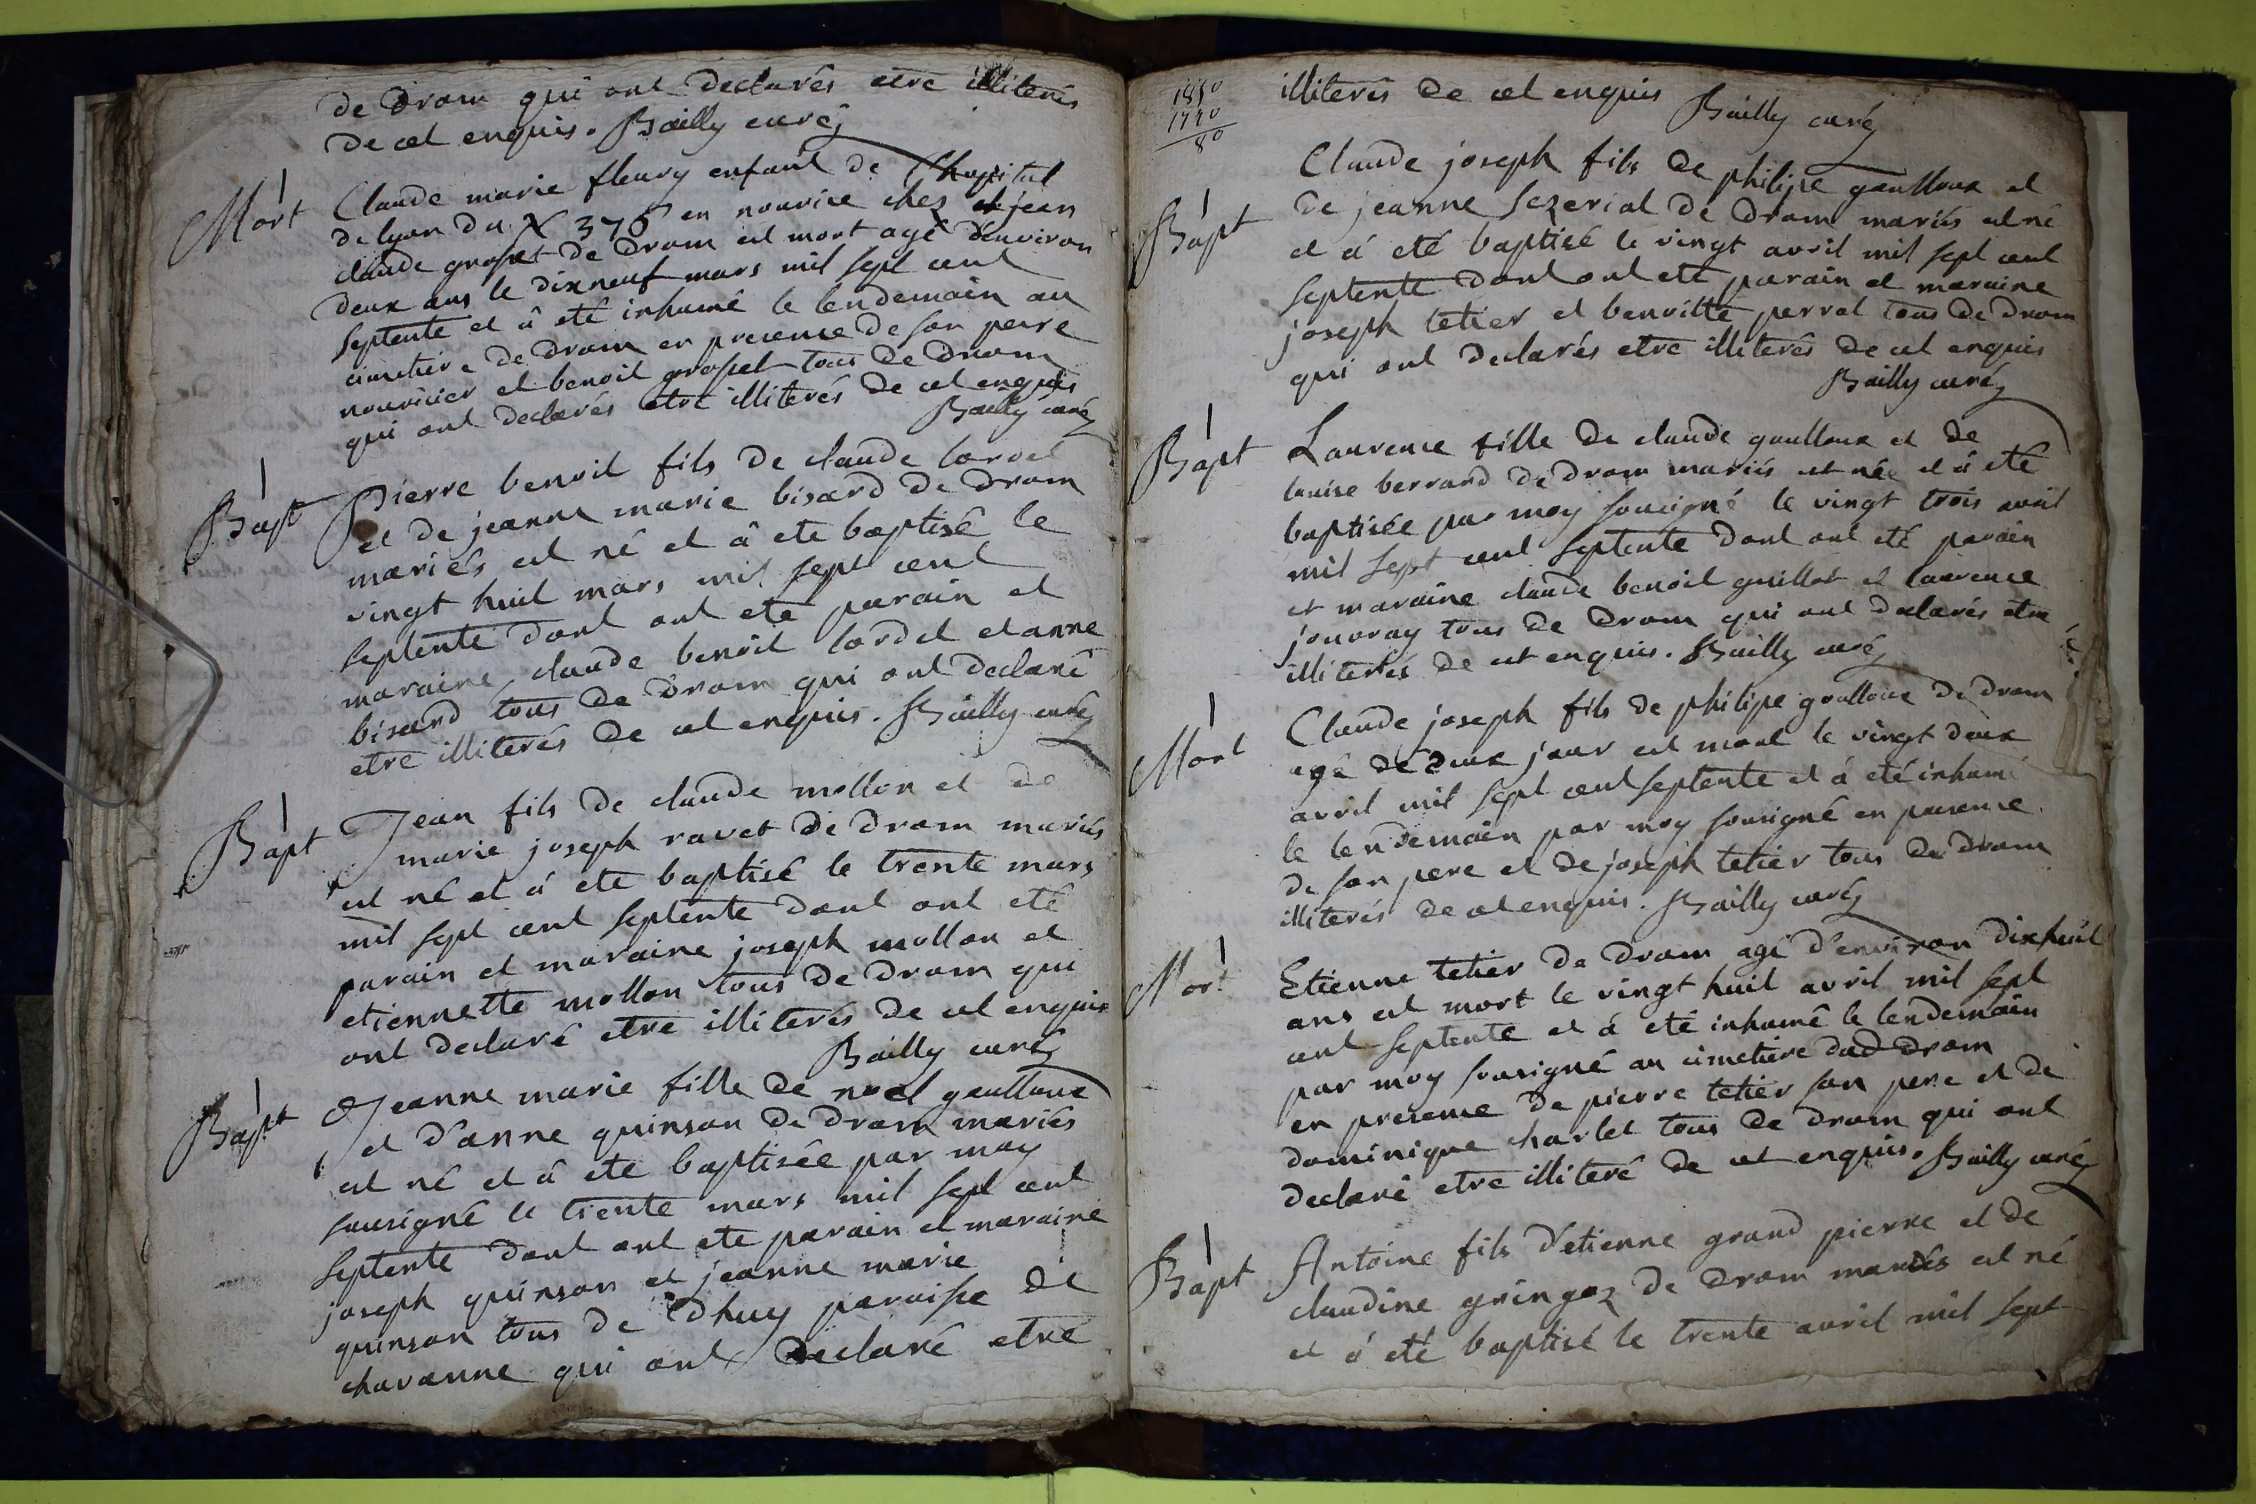 de dram qui ont declarés etre illiterés
de cet enquis. Bailly curé
Mort
Claude marie fleury enfant de l'hopital
de lyon du N 376 en nourice chez jean
claude groset de dram est mort agé d'environ
deux ans le dixneuf mars mil sept cent
septente et à eté inhumé le lendemain au
cimetiere de dram en presence de son pere
nouricier et benoit groset tous de dram
qui ont declarés etre illiterés de cet enquis
Bailly curé
Bapt
Pierre benoit fils de claude lordel
et de jeanne marie bisard de dram
mariés est né et à ete baptisé le
vingt huit mars mil sept cent
septente dont ont ete parain et
maraine claude benoit lordel et anne
bisard tous de dram qui ont declaré
etre illiterés de cet enquis. Bailly curé
Bapt
Jean fils de claude mollon et de
marie joseph ravet de dram mariés
est né et à ete baptisé le trente mars
mil sept cent septente dont ont eté
parain et maraine joseph mollon et
etiennette mollon tous de dram qui
ont declaré etre illiterés de cet enquis
Bailly curé
Bapt
Jeanne marie fille de noel goulloux
et d'anne quinson de dram mariés
est né et à ete baptisée par moy
sousigné le trente mars mil sept cent
septente dont ont ete parain et maraine
joseph quinson et jeanne marie
quinson tous de dhuy paroisse de
chavanne qui ont declaré etre
1850
1770
80
illiterés de cet enquis Bailly curé
Bapt
Claude joseph fils de philipe goulloux et
de jeanne sezeriat de dram mariés est né
et à eté baptisé le vingt avril mil sept cent
septente dont ont eté parain et maraine
joseph tetier et benoitte perret tous de dram
qui ont declarés etre illiterés de cet enquis
Bailly curé
Bapt
Laurence fille de claude goulloux et de
louise berrard de dram mariés est née et à eté
baptisée par moy sousigné le vingt trois avril
mil sept cent septente dont ont eté parain
et maraine claude benoit guillot et laurence
jouvray tous de dram qui ont declarés etre
illiterés de cet enquis. Bailly curé
Mort
Claude joseph fils de philipe goulloux de dram
agé de deux jour est mort le vingt deux
avril mil sept cent septente et à eté inhumé
le lendemain par moy sousigné en presence
de son pere et de joseph tetier tous de dram
illiterés de cet enquis. Bailly curé
Mort
Etienne tetier de dram agé d'environ dixhuit
ans est mort le vingt huit avril mil sept
cent septente et à eté inhumé le lendemain
par moy sousigné au cimetiere dud dram
en presence de pierre tetier son pere et de
dominique charlet tous de dram qui ont
declaré etre illiteré de cet enquis. Bailly curé
Bapt
Antoine fils d'etienne grand pierre et de
claudine gringoz de dram mariés est né
et à eté baptisé le trente avril mil sept